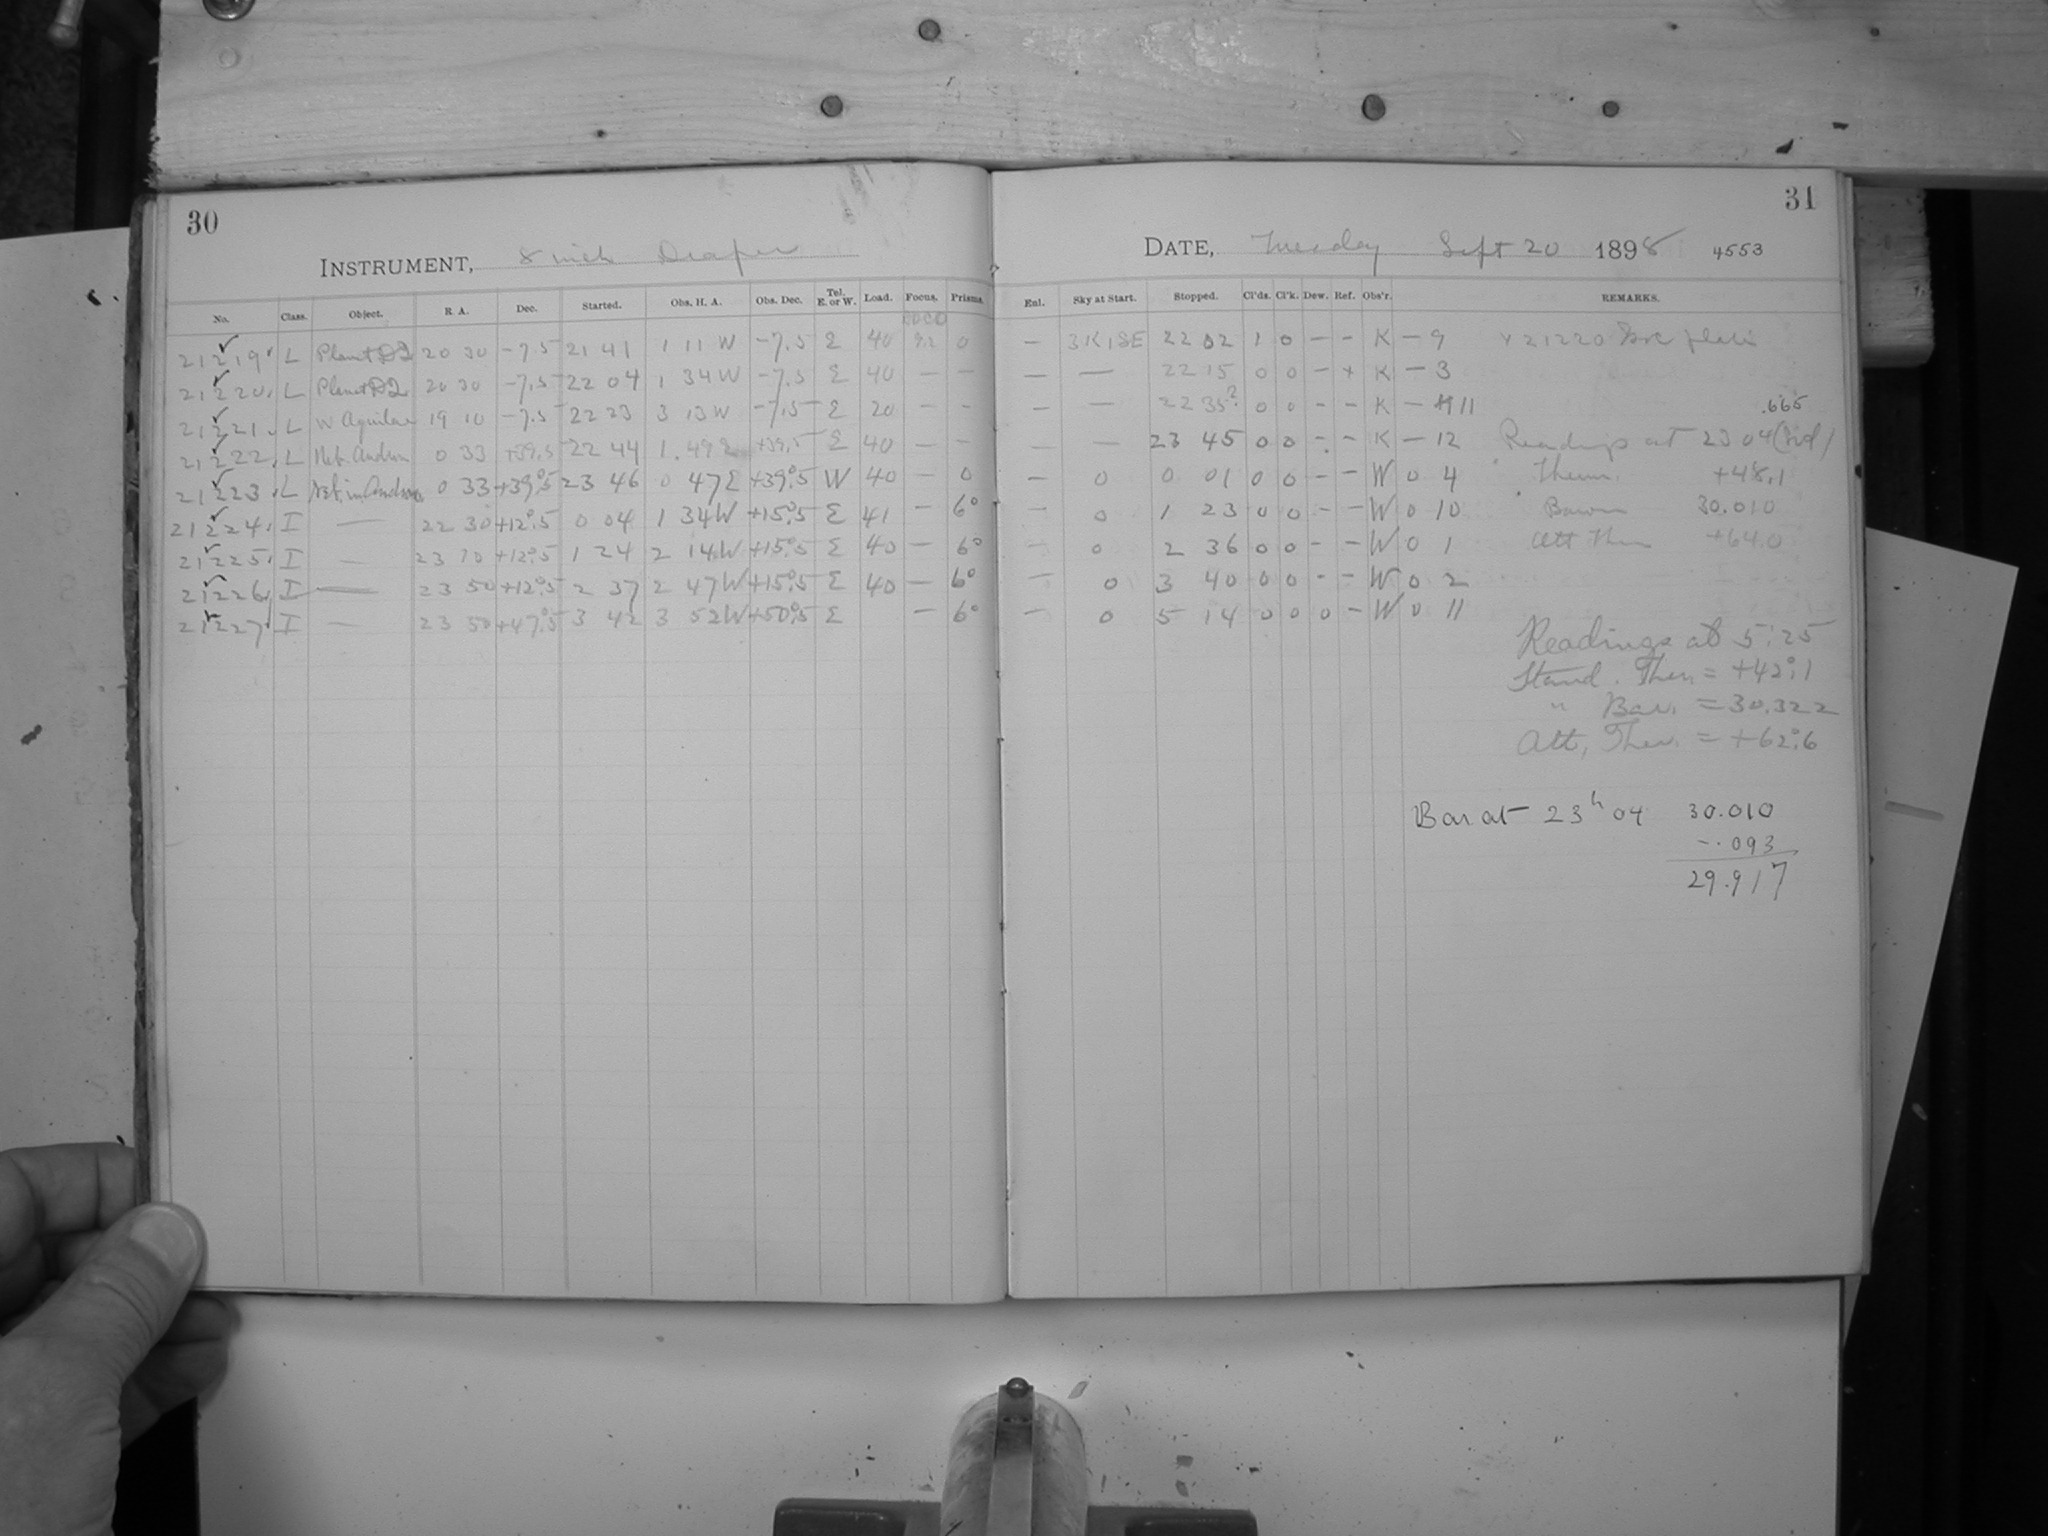 30
INSTRUMENT, 8 inch Draper
No. Class. Object. R. A. Dec. Started. Obs. H. A. Obs. Dec. Tel. E. or W. Load. Focus. Prisms.
21219 L Planet DQ 20 30 -7.5 21 41 1 11 W -7.5 E 40 9.2 0
21220 L Planet DQ 20 30 -7.5 22 04 1 34 W -7.5 E 40 — —
21221 L W Aquilae 19 10 -7.5 22 23 3 13 W -7.5 E 20 — —
21222 L Neb. Androm 0 33 +39.5 22 44 1.49 E +39.5 E 40 — —
21223 L Neb. in Androm 0 33 +39°.5 23 46 0 47 E +39°.5 W 40 — 0
21224 I — 22 30 +12°.5 0 04 1 34 W +15°.5 E 41 — 6°
21225 I — 23 10 +12°.5 1 24 2 14 W +15°.5 E 40 — 6°
21226 I — 23 50 +12°.5 2 37 2 47 W +15°.5 E 40 — 6°
21227 I — 23 50 +47°.5 3 42 3 52 W +50°.5 E — 6°
31
DATE, Tuesday Sept 20 1898 4553
Enl. Sky at Start. Stopped. Cl'ds. Cl'k. Dew. Ref. Obs'r. REMARKS.
— 3K1SE 22 02 1 0 — — K — 9 21220
— — 22 15 0 0 — + K — 3
— — 22 35? 0 0 — — K — 11 .665
— — 23 45 0 0 — — K — 12 Readings at 23 04
— 0 0 01 0 0 — — W 0 4 Therm. +48.1
— 0 1 23 0 0 — — W 0 10 Barom 30.010
— 0 2 36 0 0 — — W 0 1 Att Ther +64.0
— 0 3 40 0 0 — — W 0 2
— 0 5 14 0 0 0 — W 0 11
Readings at 5:25
Stand. Ther. = +42°.1
" Bar. = 30.322
Att. Ther. = +62°.6
Bar at 23h 04 30.010
-.093
29.917